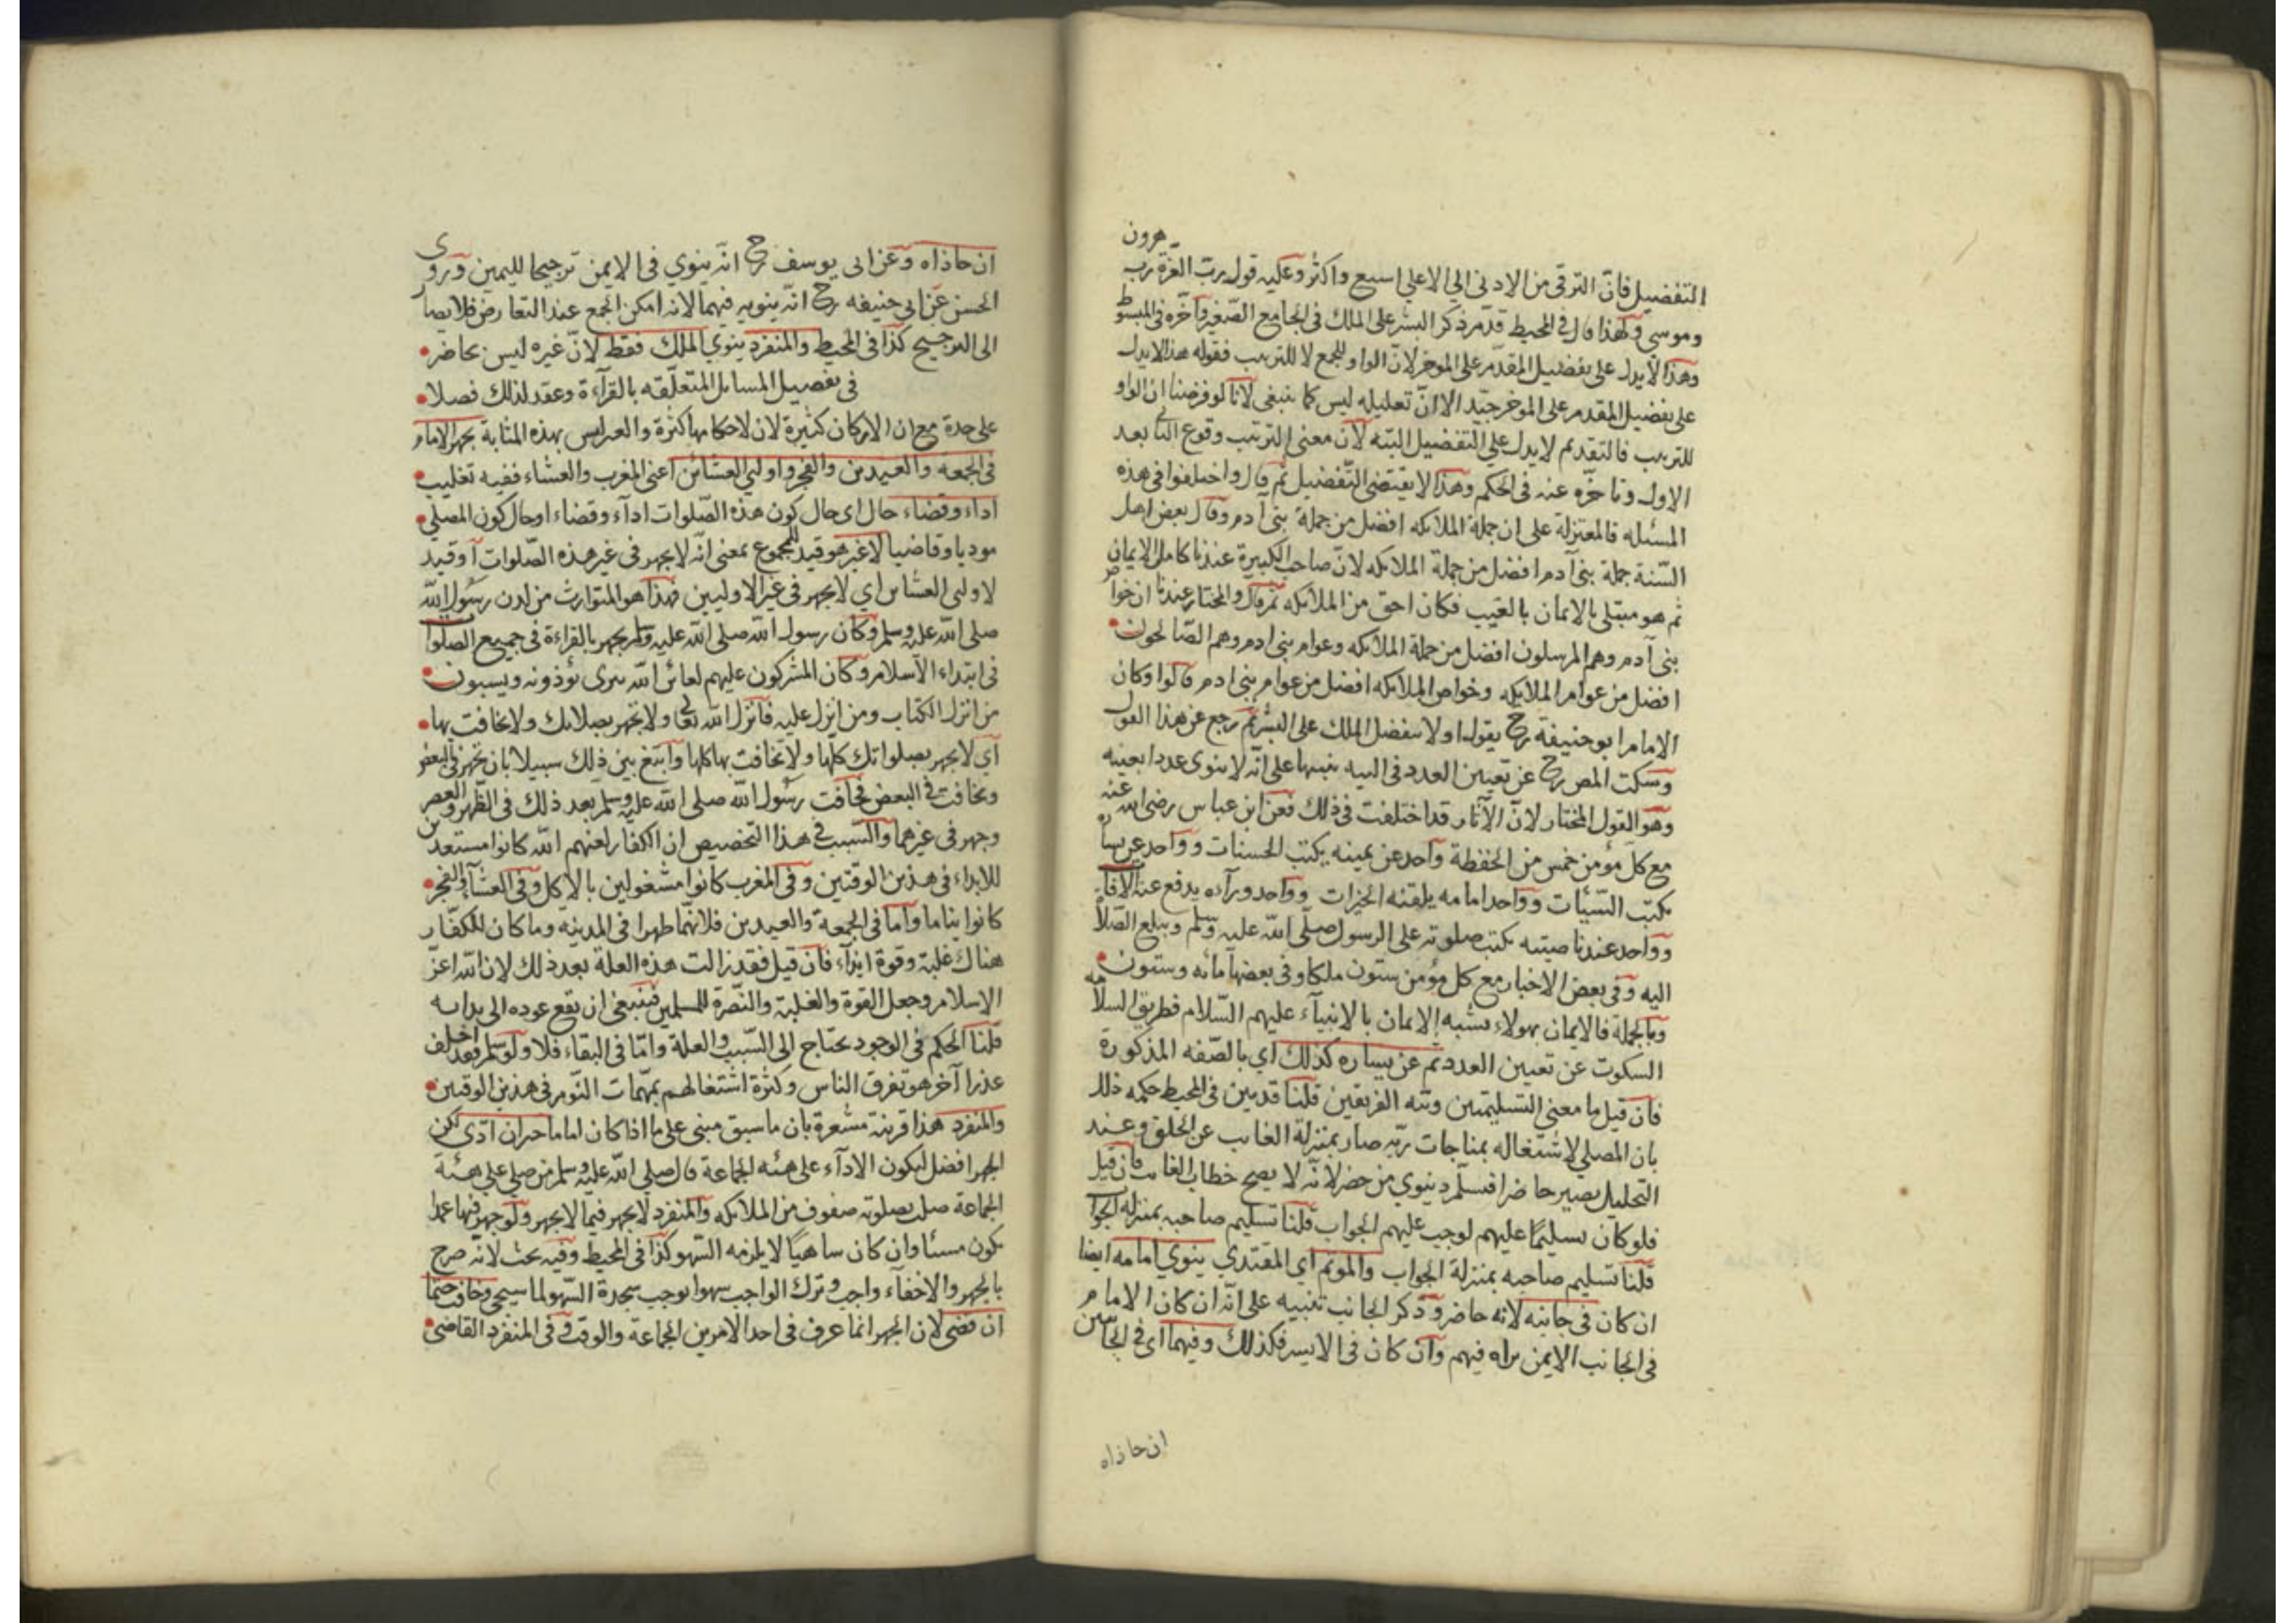 هرون
التفضيل فان الترقي من الادني الي الاعلي اسيع واكثر وعليه قول رب العزة رب
وموسى ولهذا قال في المحيط قدم ذكر البشر على الملك في الجامع الصغير وآخره في المبسوط
وهذا لا يدل على تفضيل المقدم على الموخر لان الواو للجمع لا للترتيب فقوله هذا لا يدل
على تفضيل المقدم على الموخر جيد الا ان تعليله ليس كما ينبغي لانا لو فرضنا ان الواو
للترتيب فالتقديم لا يدل علي التفضيل البته لان معنى الترتيب وقوع الثاني بعد
الاول وتاخره عنه في الحكم وهذا لا يقتضي التفضيل ثم قال واختلفوا في هذه
المسئله فالمعتزلة على ان جملة الملائكه افضل من جملة بني آدم وقال بعض اهل
السنة جملة بني آدم افضل من جملة الملائكه لان صاحب الكبيرة عندنا كامل الايمان
ثم هو مبتلى بالايمان بالغيب فكان احق من الملائكه ثم قال والمختار عندنا ان خواص
بني آدم وهم المرسلون افضل من جملة الملائكه وعوام بني ادم وهم الصالحون
افضل من عوام الملائكه وخواص الملائكه افضل من عوام بني ادم قالوا وكان
الامام ابو حنيفة رح يقول اولا بتفضيل الملك على البشر ثم رجع عن هذا القول
وسكت المص رح عن تعيين العدد في النيه تنبيها على انه لا ينوى عددا بعينه
وهو القول المختار لان الآثار قد اختلفت في ذلك فعن ابن عباس رضي الله عنه
مع كل مؤمن خمس من الحفظة واحد عن يمينه يكتب الحسنات وواحد عن يساره
يكتب السيئات وواحد امامه يلقنه الخيرات وواحد ورآءه يدفع عنه الآفات
وواحد عند ناصيته يكتب صلوته على الرسول صلى الله عليه وسلم ويبلغ الصلاة
اليه وفي بعض الاخبار مع كل مؤمن ستون ملكا وفي بعضها مائه وستون
وبالجملة فالايمان بهولاء يشبه الايمان بالانبيآء عليهم السلام فطريق السلامه
السكوت عن تعيين العدد ثم عن يساره كذلك اي بالصفه المذكورة
فان قيل ما معني التسليمتين ونيه الفريقين قلنا قد بين في المحيط حكمه ذلك
بان المصلي لاشتغاله بمناجات ربه صار بمنزلة الغايب عن الخلق وعند
التحليل يصير حاضرا فيسلم وينوي من حضر لانه لا يصح خطاب الغايب فان قيل
فلو كان تسليما عليهم لوجب عليهم الجواب قلنا تسليم صاحبه بمنزلة الجواب
قلنا تسليم صاحبه بمنزلة الجواب والموتم اي المقتدي ينوي امامه ايضا
ان كان في جانبه لانه حاضر وذكر الجانب تنبيه على انه ان كان الامام
في الجانب الايمن يراه فيهم وان كان في الايسر فكذلك وفيهما اي في الجانبين
ان حاذاه
ان حاذاه وعن ابى يوسف رح انه ينوي في الايمن ترجيحا لليمين وروى
الحسن عن ابي حنيفه رح انه ينويه فيهما لانه امكن الجمع عند التعارض فلا يصار
الى الترجيح كذا في المحيط والمنفرد ينوي الملك فقط لان غيره ليس بحاضر
في تفصيل المسايل المتعلقه بالقرآءة وعقد لذلك فصلا
على حدة مع ان الاركان كثيرة لان لاحكامها كثرة والعرليس بهذه المثابة يجهر الامام
في الجمعة والعيدين والفجر واولي العشائن اعني المغرب والعشاء ففيه تغليب
اداء وقضاء حال اى حال كون هذه الصلوات ادآء وقضاء او حال كون المصلي
موديا وقاضيا لا غير هو قيد للمجموع بمعنى انه لا يجهر في غير هذه الصلوات او قيد
لاولى العشاين اي لا يجهر في غير الاوليين هذا هو المتوارث من لدن رسول الله
صلى الله عليه وسلم وكان رسول الله صلى الله عليه وسلم يجهر بالقراءة في جميع الصلوات
في ابتداء الاسلام وكان المشركون عليهم لعائن الله تترى يؤذونه ويسبون
من انزل الكتاب ومن انزل عليه فانزل الله تعالى ولا تجهر بصلاتك ولا تخافت بها
اي لا تجهر بصلواتك كلها ولا تخافت بها كلها وابتغ بين ذلك سبيلا بان تجهر في البعض
وتخافت في البعض فخافت رسول الله صلى الله عليه وسلم بعد ذلك في الظهر والعصر
وجهر في غيرهما والسبب في هذا التخصيص ان الكفار لعنهم الله كانوا مستعدين
للايذاء في هذين الوقتين وفي المغرب كانوا مشغولين بالاكل وفي العشآء والفجر
كانوا نياما واما في الجمعة والعيدين فلانهما ظهرا في المدينه وما كان للكفار
هناك غلبة وقوة ايذآء فان قيل فقد زالت هذه العلة بعد ذلك لان الله اعز
الاسلام وجعل القوة والغلبة والنصرة للمسلمين فينبغي ان يقع عوده الى بدايه
قلنا الحكم في الوجود يحتاج الى السبب والعلة واما في البقاء فلا ولو سلم فقد اخلف
عذرا آخر هو تفرق الناس وكثرة اشتغالهم بمهمات النوم في هذين الوقتين
والمنفرد هذا قرينة مشعرة بان ما سبق مبني على ما اذا كان اماما خير ان ادى لكن
الجهر افضل ليكون الادآء على هيئه الجماعة قال صلى الله عليه وسلم من صلى على هيئة
الجماعة صلت بصلوته صفوف من الملائكه والمنفرد لا يجهر فيما لا يجهر ولو جهر فيها عمدا
يكون مسئا وان كان ساهيا لا يلزمه السهو كذا في المحيط وفيه بحث لانه صرح
بالجهر والاخفآء واجب وترك الواجب سهوا يوجب سجدة السهو لما سيجي وخافت حتما
ان قضى لان الجهر انما عرف في احد الامرين الجماعة والوقت وفي المنفرد القاضي